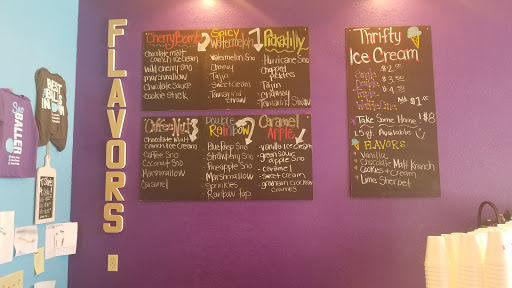 FLAVORS
CherryBomb
Chocolate malt
crunch ice cream
Wild cherry sno
marshmallow
Chocolate Sauce
Cookie Stick
Spicy
Watermelon
Watermelon Sno
Chamoy
Tajin
Sweet Cream
Tamarind
Straw
Pickadilly
Hurricane Sno
Chopped
pickles
Tajin
Chamoy
Tamarind Straw
Coffee + Nut
Chocolate Malt
crunch Ice Cream
Coffee Sno
Coconut Sno
Marshmallow
Caramel
Double
Rainbow
Blue Pop Sno
Strawberry Sno
Pineapple Sno
Marshmallow
Sprinkles
Rainbow Pop
Caramel
Apple
vanilla ice cream
green sour
apple Sno
caramel
sweet cream
graham cracker
Thrifty
Ice Cream
Take Some Home $8
1.5 qt. Available
FLAVORS
Vanilla
Chocolate Malt Krunch
Cookies + Cream
Lime Sherbet
BEST
BALLS
IN
TOWN
Sno
BALLER